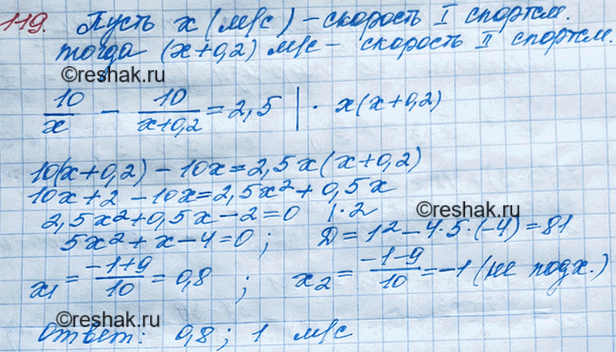 119. Пусть x (м/с) – скорость I спортсм.
тогда (x+0,2) м/с – скорость II спортсм.
©reshak.ru
10/x – 10/(x+0,2) = 2,5 | · x(x+0,2)
10(x+0,2) – 10x = 2,5x(x+0,2)
10x + 2 – 10x = 2,5x² + 0,5x
2,5x² + 0,5x – 2 = 0 |·2
©reshak.ru
5x² + x – 4 = 0 ; D = 1² – 4·5·(–4) = 81
x₁ = (–1+9)/10 = 0,8 ; x₂ = (–1–9)/10 = –1 (не подх.)
©reshak.ru
Ответ: 0,8 ; 1 м/с